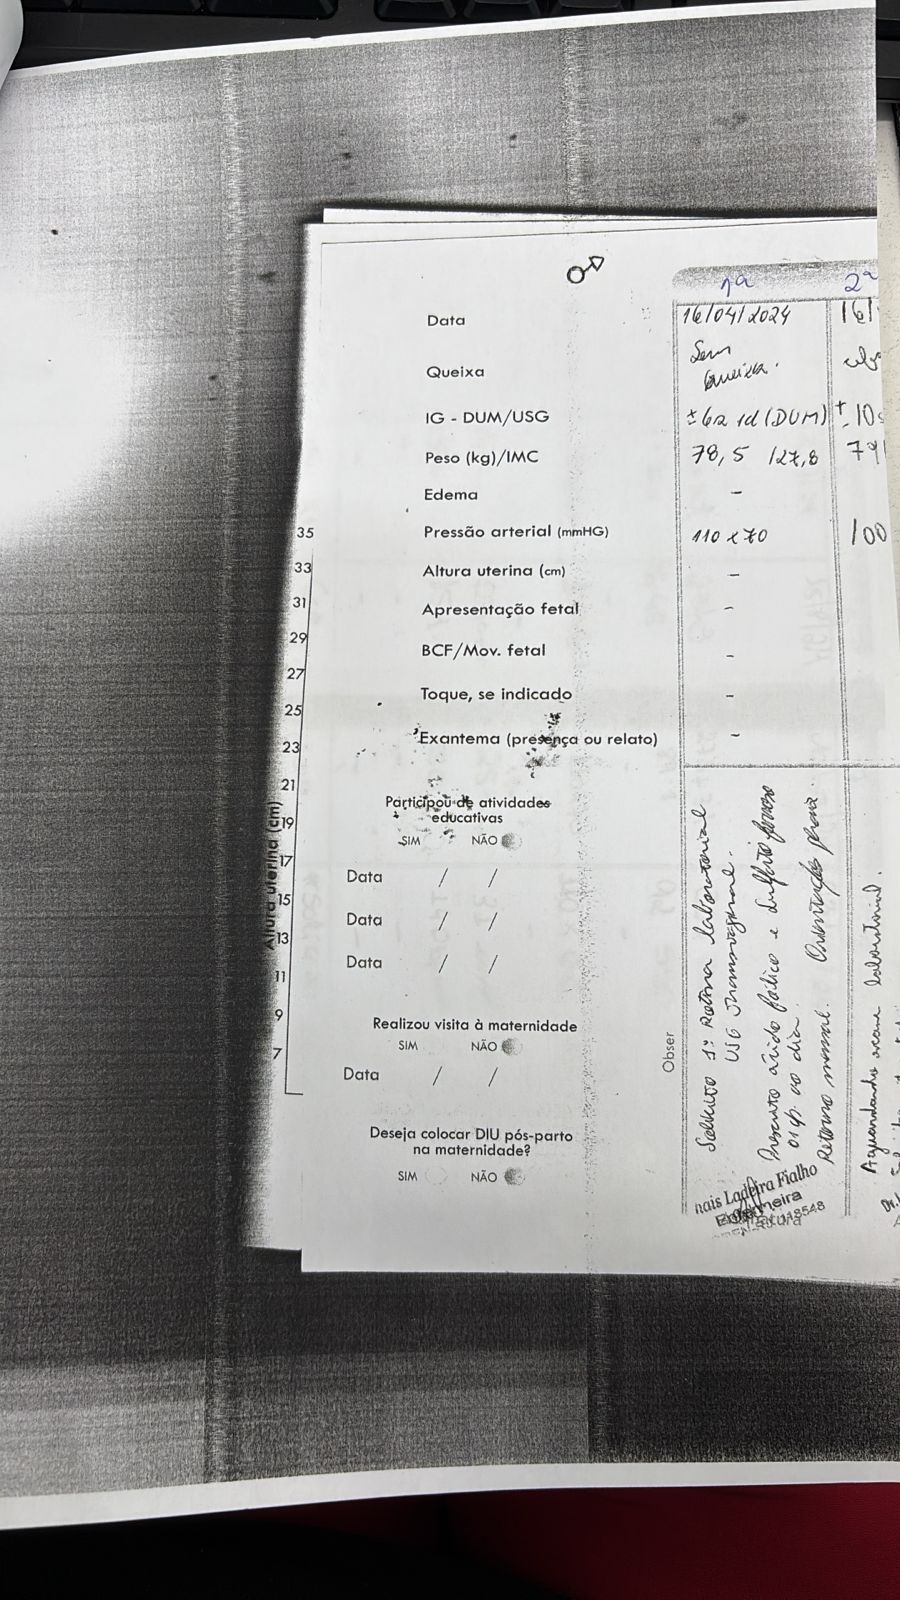 1ª 2ª
Data 16/04/2024 16/
Queixa Sem
queixa.
IG - DUM/USG ± 6s 1d (DUM) ± 10s
Peso (kg)/IMC 78,5 /27,8 79
Edema -
35 Pressão arterial (mmHG) 110 x 70 100
33 Altura uterina (cm) -
31 Apresentação fetal -
29
BCF/Mov. fetal -
27
Toque, se indicado -
25
23 Exantema (presença ou relato) -
21
Altura uterina (cm)
19
17
15
13
11
9
7
Participou de atividades
educativas
SIM NÃO
Data / /
Data / /
Data / /
Realizou visita à maternidade
SIM NÃO
Data / /
Deseja colocar DIU pós-parto
na maternidade?
SIM NÃO
Obser
Solicito 1ª Rotina laboratorial
USG Transvaginal.
Prescrito ácido fólico e sulfato ferroso
01cp. ao dia.
Retorno mensal. Orientações gerais.
nais Ladeira Fialho
Enfermeira
118548
Aguardando exame laboratorial.
Dr.